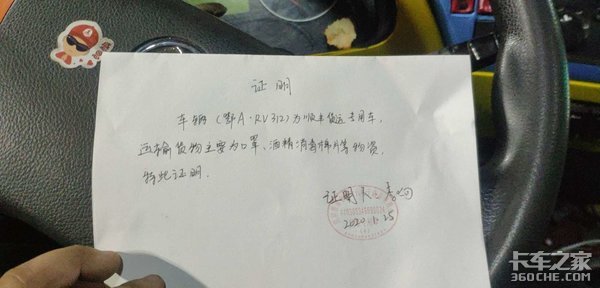 证明
车辆（鄂A·RV312）为顺丰货运专用车，
运输货物主要为口罩、酒精消毒棉片等物资，
特此证明.
证明人
2020.1.25
卡车之家
360che.com